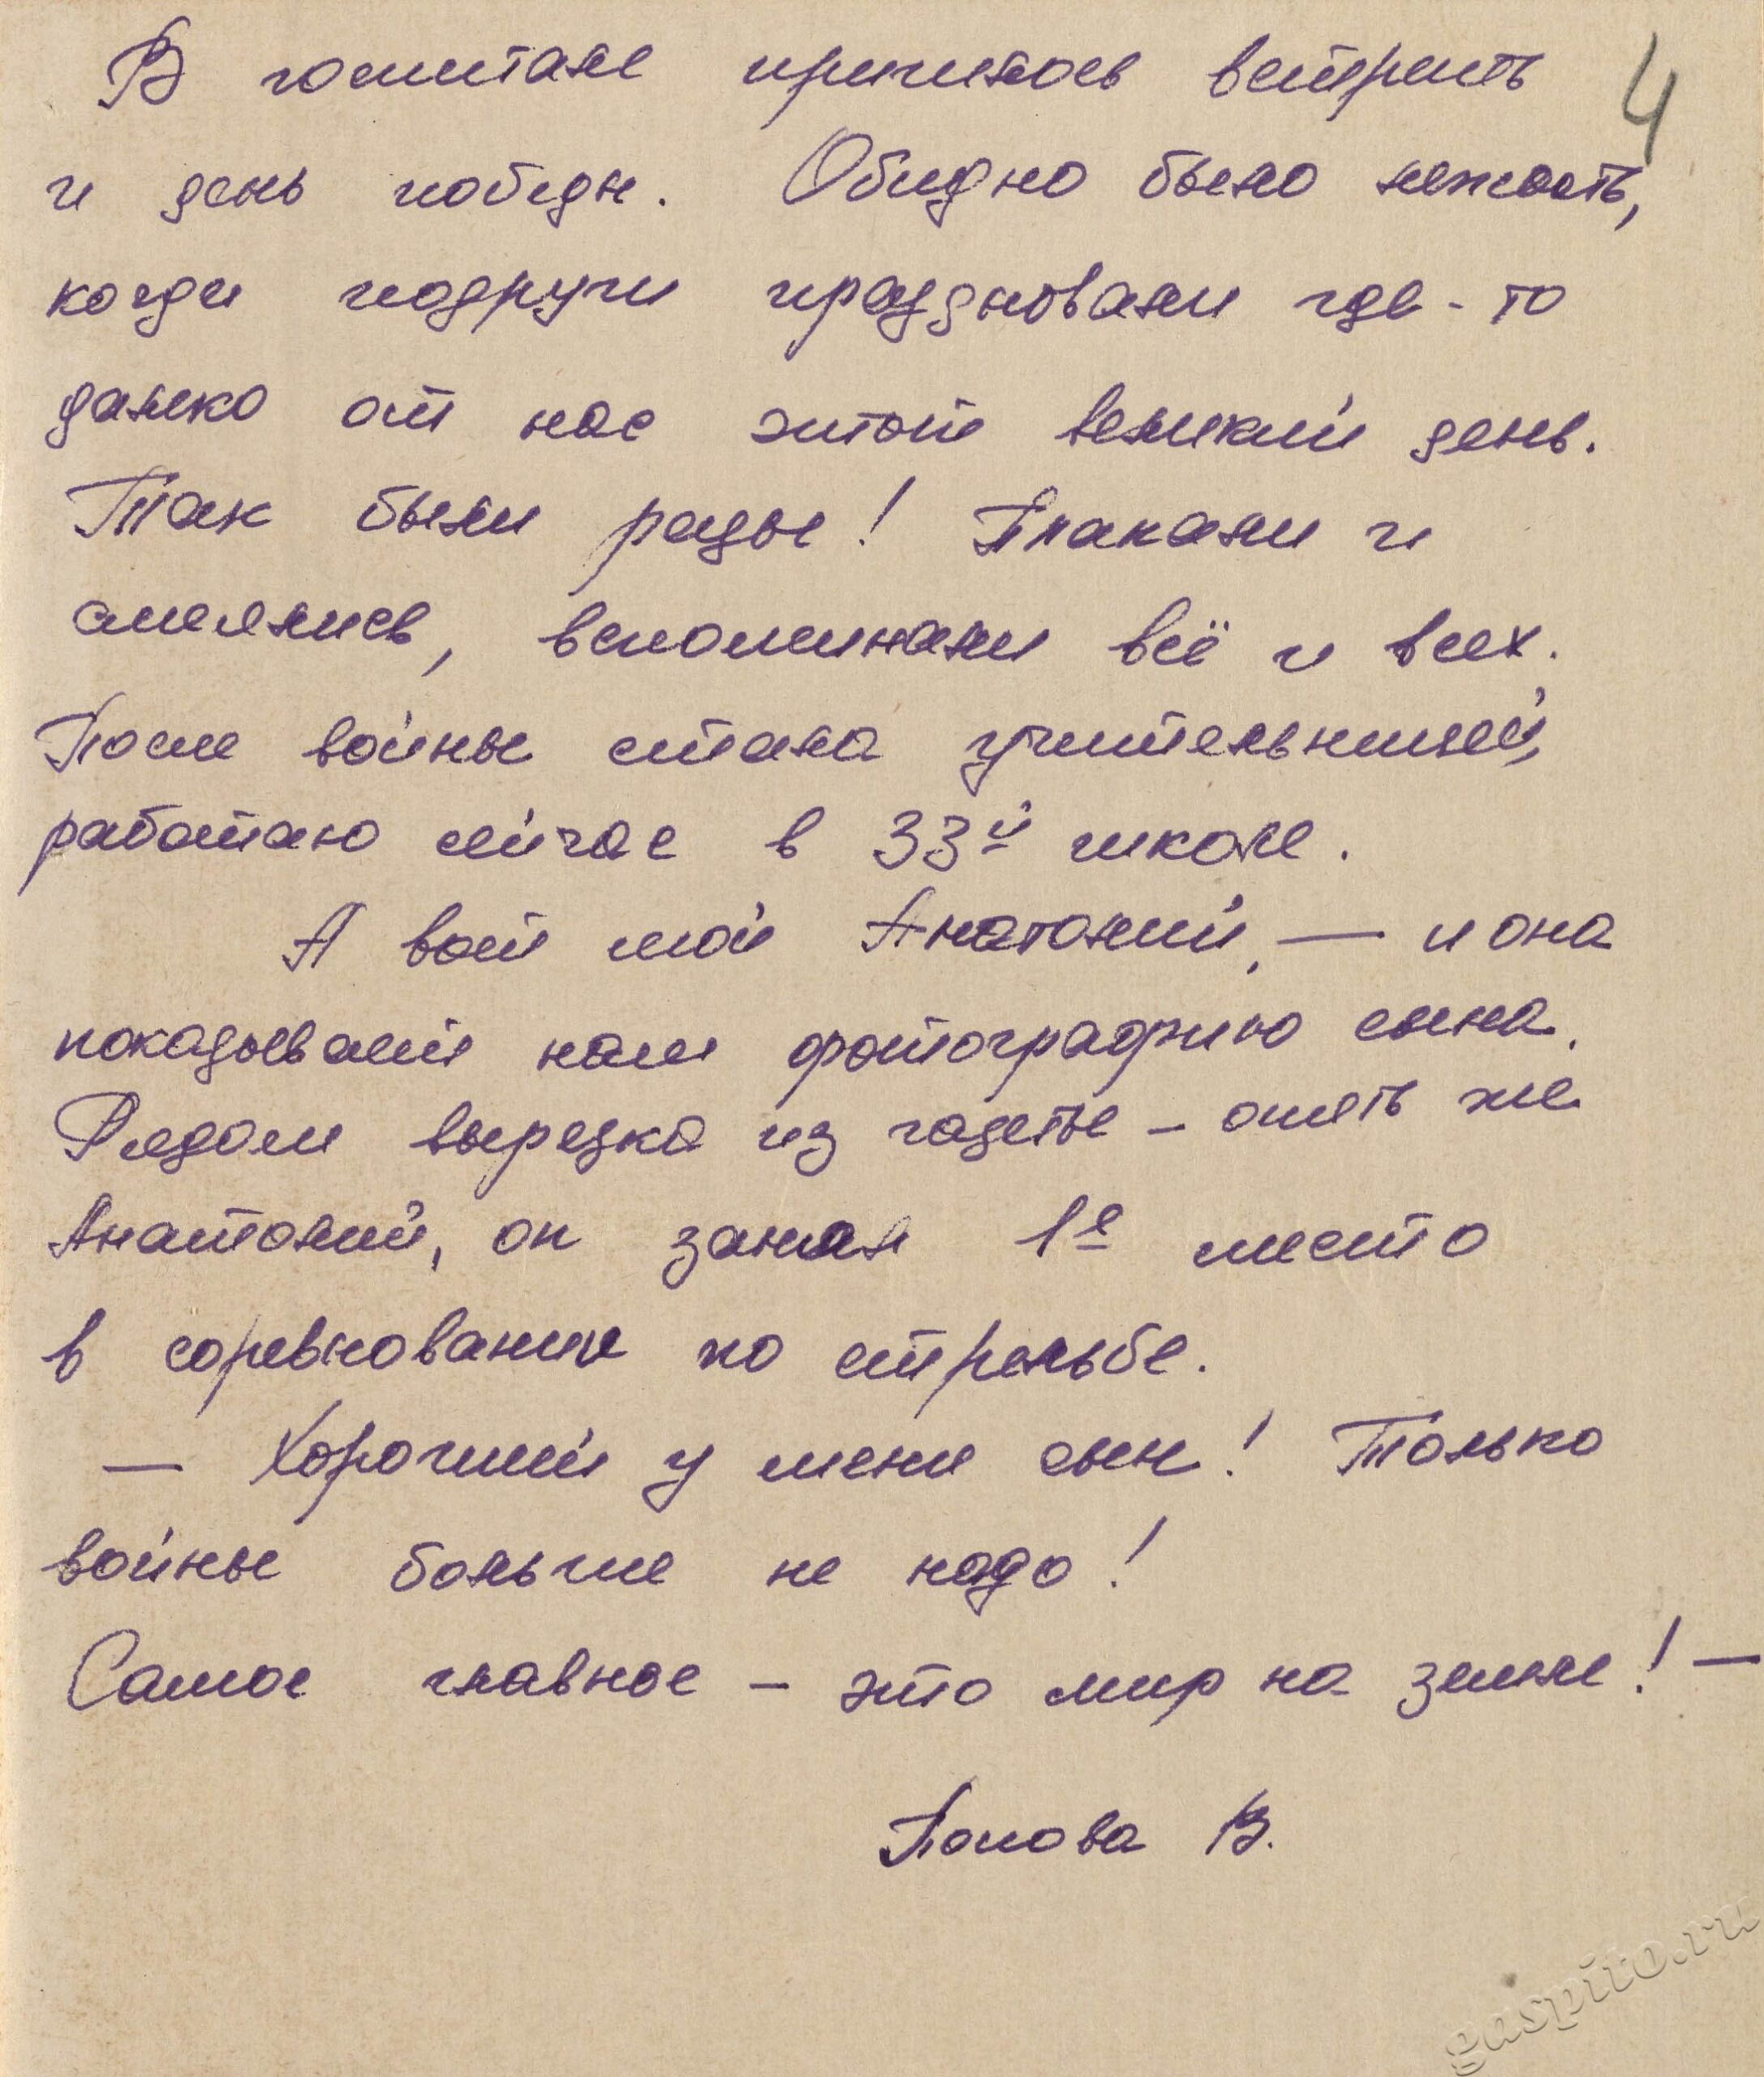 В госпитале пришлось встретить 4
и день победы. Обидно было лежать,
когда подруги праздновали где-то
далеко от нас этот великий день.
Так были рады! Плакали и
смеялись, вспоминали всё и всех.
После войны стала учительницей,
работаю сейчас в 33й школе.
А вот мой Анатолий, — и она
показывает нам фотографию сына.
Рядом вырезка из газеты – опять же
Анатолий, он занял 1е место
в соревновании по стрельбе.
— Хороший у меня сын! Только
войны больше не надо!
Самое главное – это мир на земле! —
Попова В.
gaspito.ru